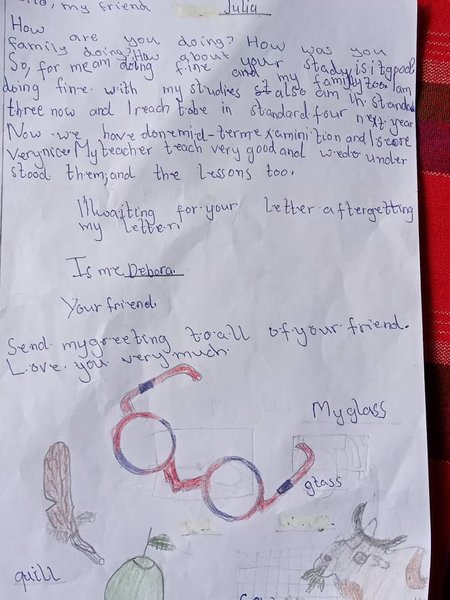 my friend Julia
How are you doing? How was you
family doing? How about your stady, is it good
So, for me am doing fine and my family too. I am
doing fine. with my studies st also am in. standar
three now and I reach tobe in standard four next year
Now. we have done mid-term examinition and I score
very nice. My teacher teach very good and we do under
stood them, and the lessons too.
I'll waiting for your letter after getting
my letter.
Is me Debora
Your friend.
Send my greeting to all of your friend.
Love you very much.
My glass
glass
quill